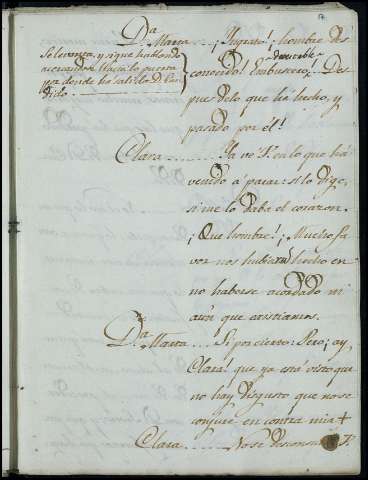 Da
Marta .... ¡Ingrato! hombre des
Se levanta, y sigue hablando
acercandose hacia la puerta
por donde ha salido Dn
dido
descreible
conocido! Embustero! Des
pues de lo que he hecho, y
pasado por él!
Clara ........ Ya ve V. en lo que ha
venido á parar: si lo dige,
si me lo daba el corazon.
¡Que hombre! ¡Mucho fa
vor nos hubiera hecho en
no haberse acordado ni
aun que existiamos.
Da
Marta ...... Si por cierto: Pero ¡ay,
Clara! que ya está visto que
no hay disgusto que no se
conjure en contra mia +
Clara ........ No se desconsuele V.